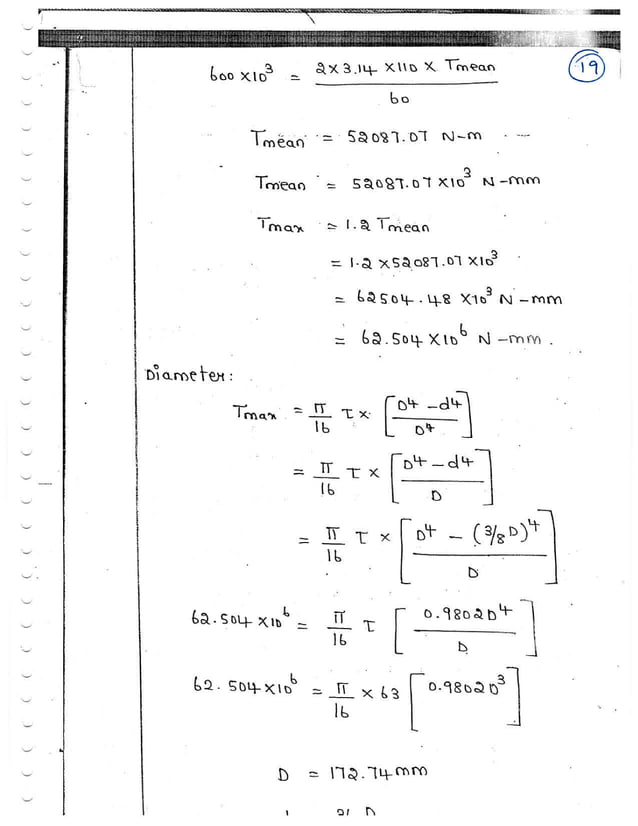 19
600 ×10³ = 2×3.14 ×110 × Tmean / 60
Tmean = 52087.07 N-m
Tmean = 52087.07 ×10³ N-mm
Tmax = 1.2 Tmean
= 1.2 ×52087.07 ×10³
= 62504.48 ×10³ N-mm
= 62.504 ×10⁶ N-mm.
Diameter:
Tmax = π/16 τ × [D4 - d4 / D4]
= π/16 τ × [D4 - d4 / D]
= π/16 τ × [D4 - (3/8 D)4 / D]
62.504 ×10⁶ = π/16 τ [0.9802D4 / D]
62.504 ×10⁶ = π/16 × 63 [0.9802D³]
D = 172.74mm